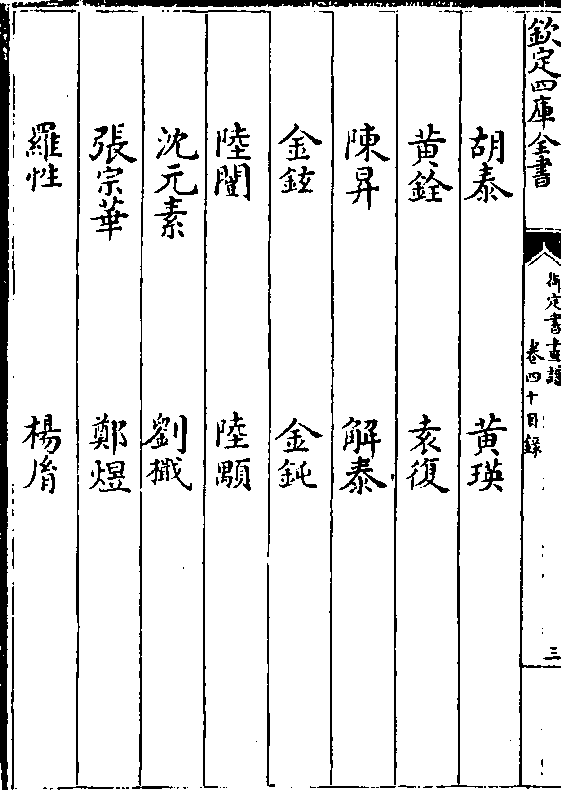 欽定四庫全書
御定書畫譜
卷四十目錄
三
胡泰 黃瑛
黃銓 袁復
陳昇 解泰
金鉉 金鈍
陸闓 陸顒
沈元素 劉
張宗華 鄭煜
羅性 楊胤